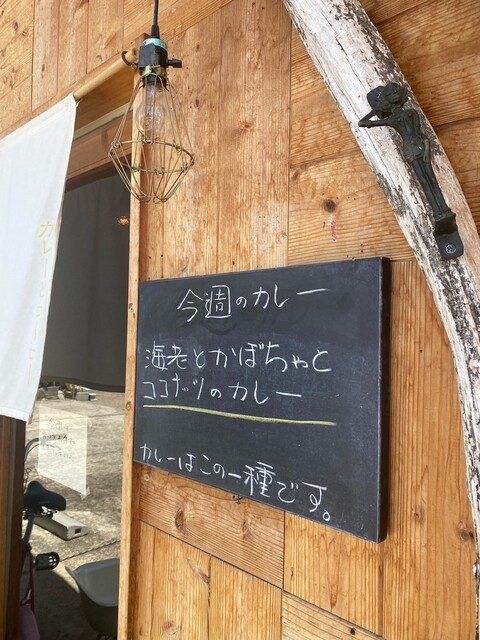 今週のカレー
海老とかぼちゃと
ココナッツのカレー
カレーはこの一種です。